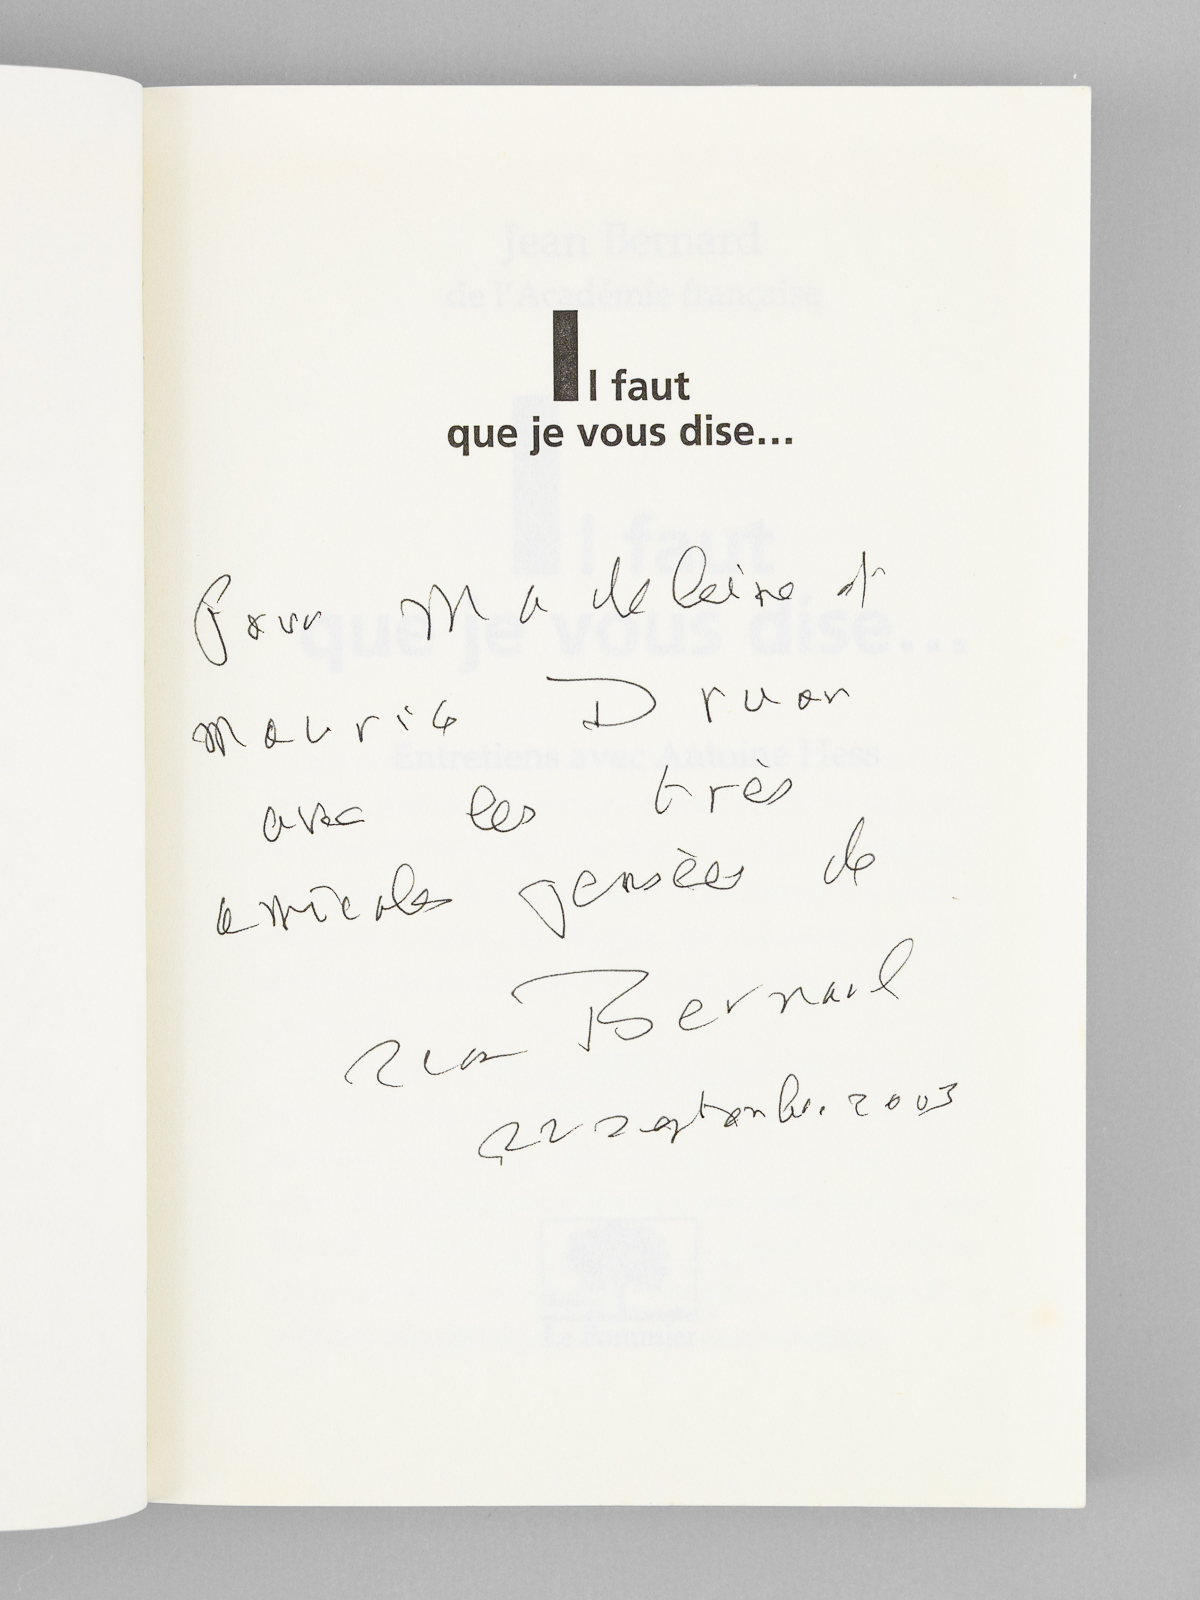 Jean Bernard
de l'Académie française
Il faut
que je vous dise...
Il faut
que je vous dise...
Entretiens avec Antoine Hess
Pour Madeleine et
Maurice Druon
avec les très
amicales pensées de
Jean Bernard
22 septembre 2003
Le Pommier